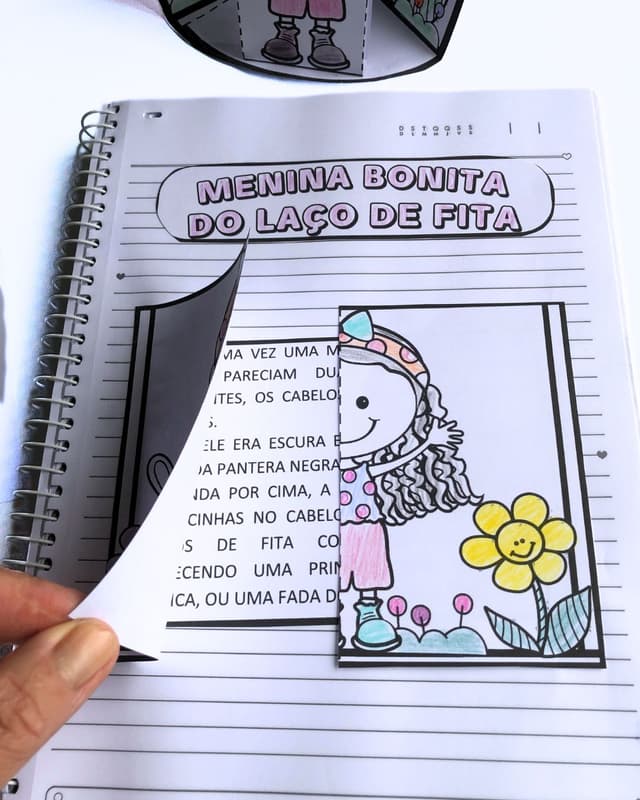 D S T Q Q S S
MENINA BONITA
DO LAÇO DE FITA
MA VEZ UMA M
PARECIAM DU
TES, OS CABELO
S.
ELE ERA ESCURA E
DA PANTERA NEGRA
NDA POR CIMA, A
CINHAS NO CABELO
S DE FITA CO
ECENDO UMA PRIN
ICA, OU UMA FADA D